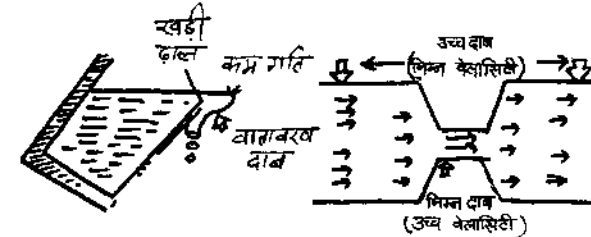 खड़ी
ढ़ाल
कम गति
वातावरण
दाब
उच्च दाब
(निम्न वेलासिटी)
निम्न दाब
(उच्च वेलासिटी)